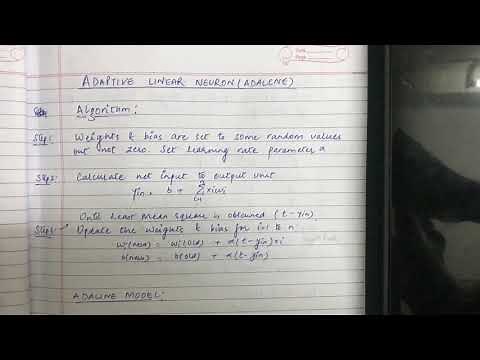 ADAPTIVE LINEAR NEURON (ADALINE)
Algorithm:
Step1: Weights & bias are set to some random values
but not zero. Set learning rate parameter α
Step2: Calculate net input to output unit
yin = b + Σ xiwi
Until Least mean square is obtained (t - yin)
Step3: Update the weights & bias for i=1 to n
wi(new) = wi(old) + α(t-yin)xi
b(new) = b(old) + α(t-yin)
ADALINE MODEL: